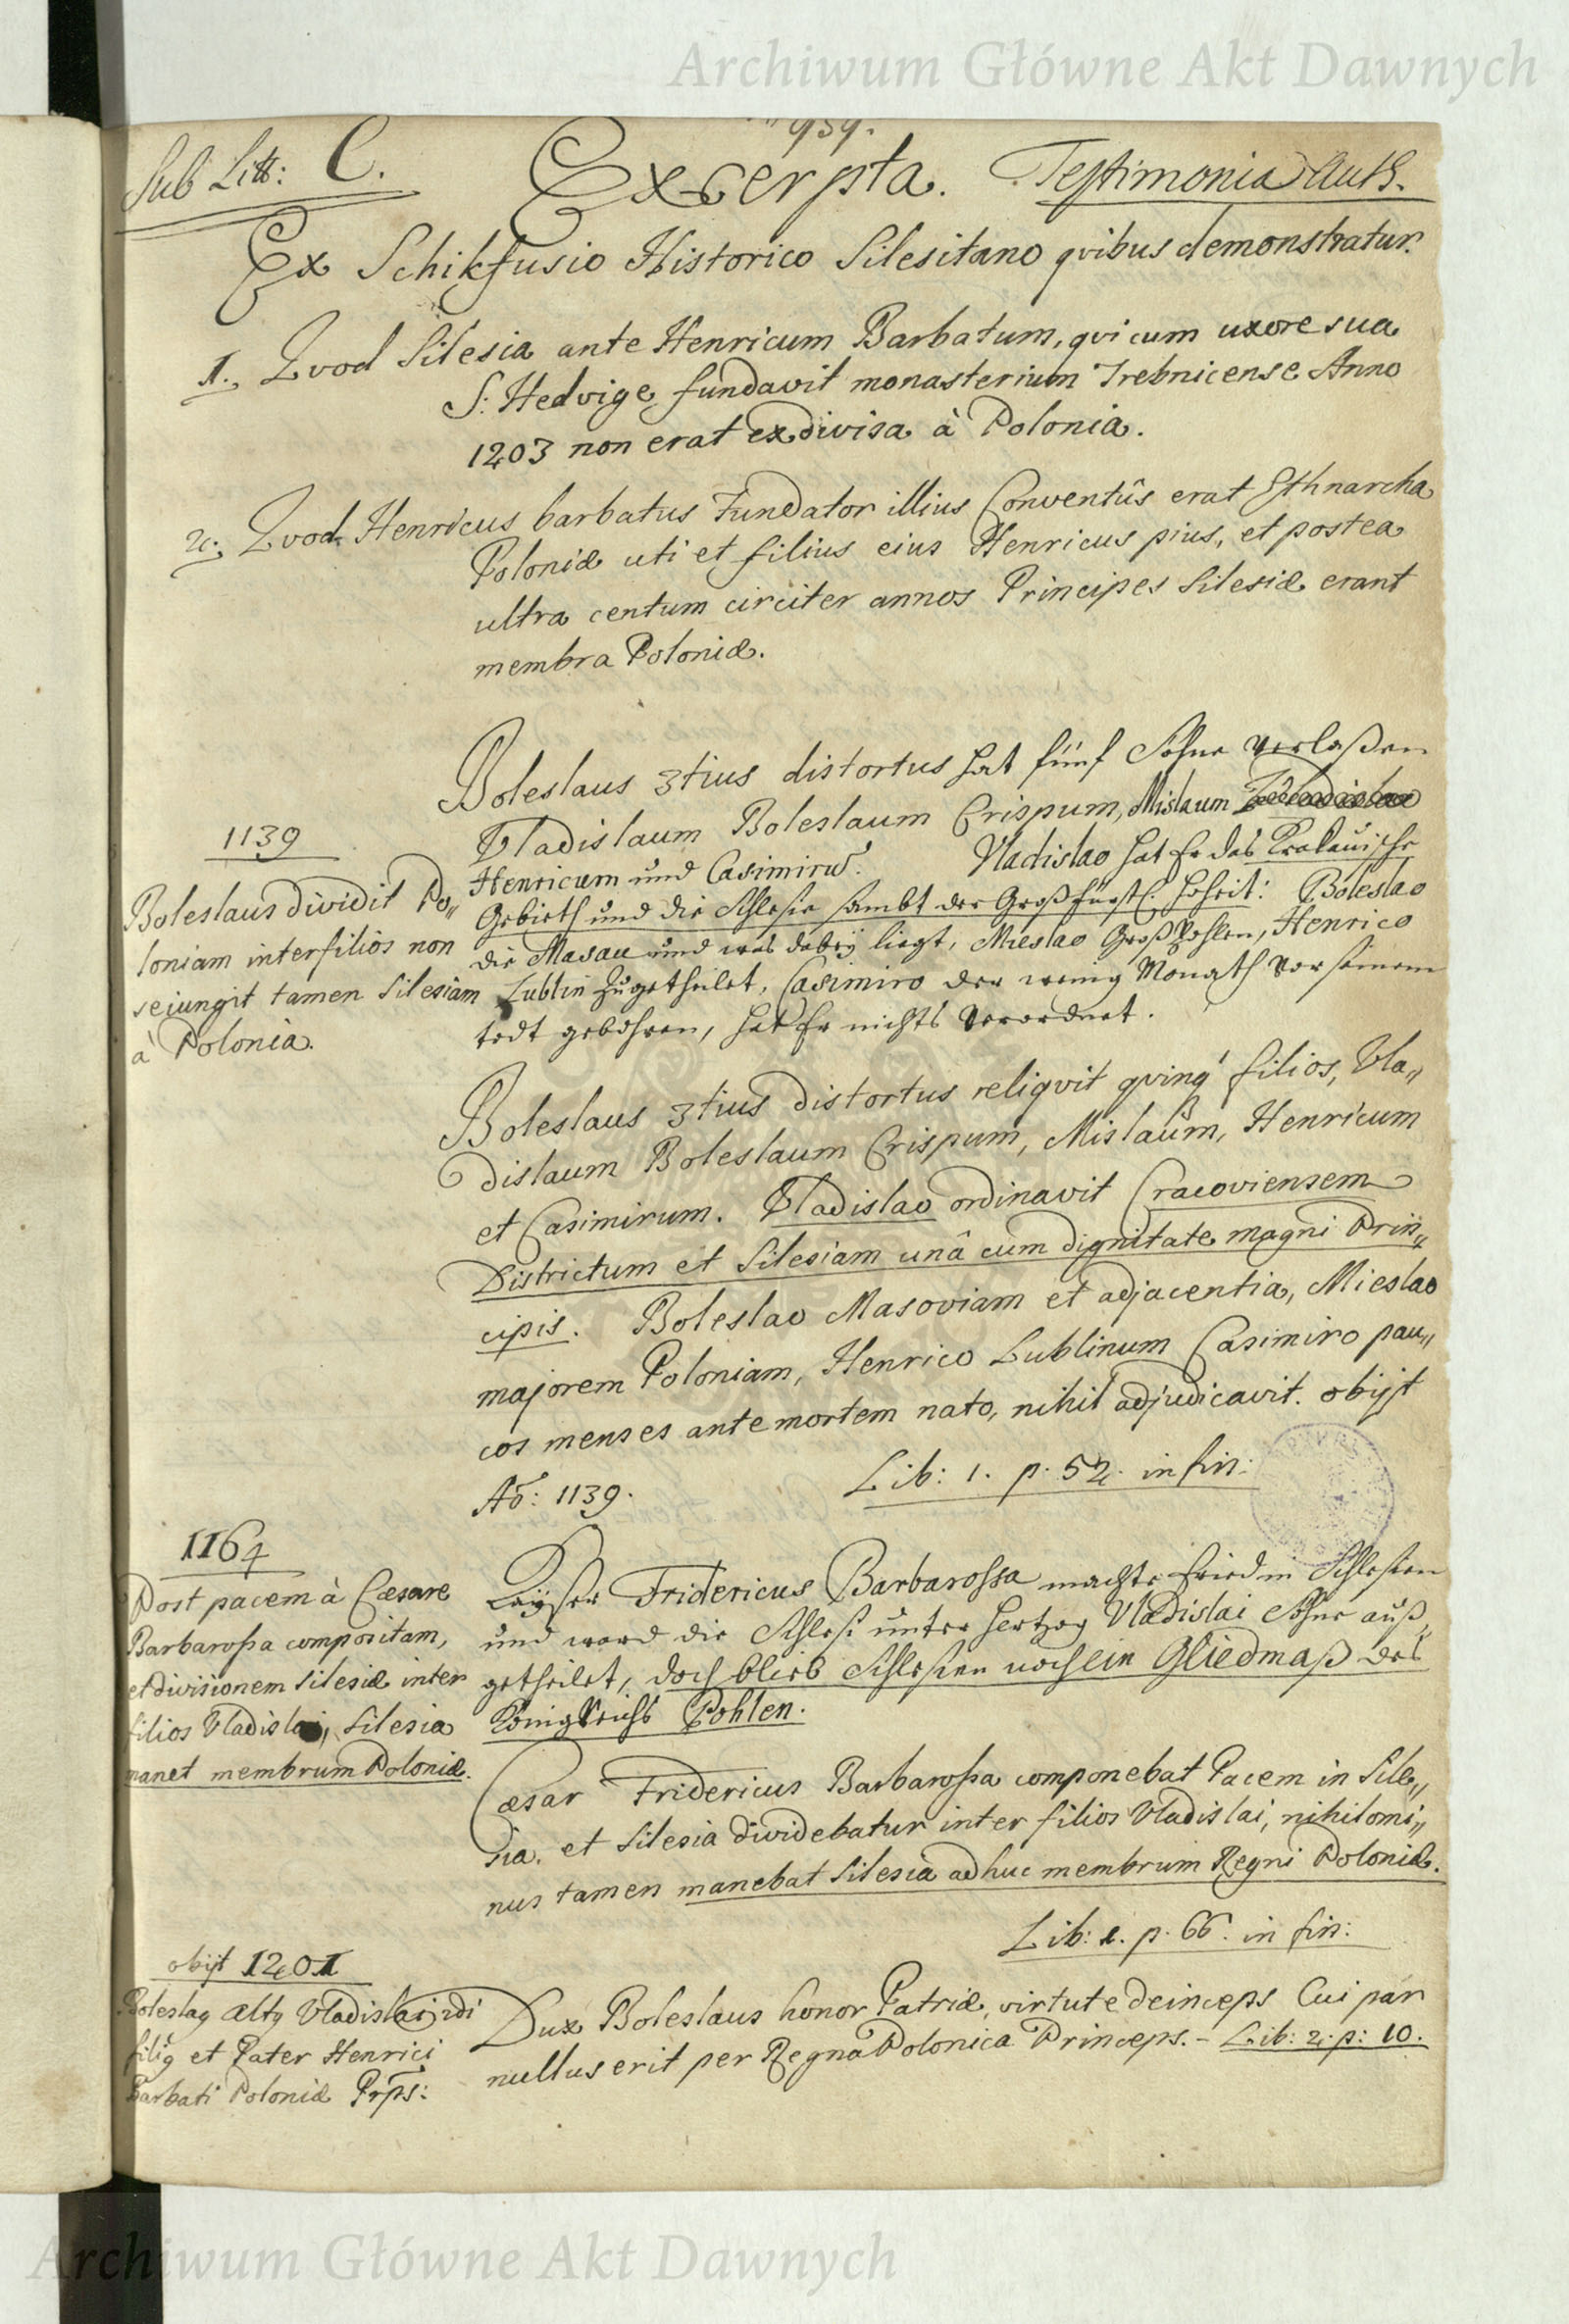 Archiwum Główne Akt Dawnych
959.
Sub Litt: C.
Excerpta. Testimonia Auth.
Ex Schikfusio Historico Silesitano qvibus demonstratur.
1., Qvod Silesia ante Henricum Barbatum, qvi cum uxore sua
S: Hedvige fundavit monasterium Trebnicense Anno
1203 non erat exdivisa à Polonia.
2., Qvod Henricus barbatus Fundator illius Conventûs erat Ethnarcha
Poloniæ uti et filius eius Henricus pius, et postea
ultra centum circiter annos Principes Silesiæ erant
membra Poloniæ.
Boleslaus 3tius distortus hat fünf Sohne verlaßen
Vladislaum Boleslaum Crispum, Mislaum
Henricum und Casimirū. Vladislao hat Er das Krakauische
Gebieth und die Schlesie sambt der Großfürstl: Hoheit: Boleslao
die Masau und was dabeÿ liegt, Mieslao Groß Pohlen, Henrico
Lublin zugetheilet, Casimiro der wenig Monath vor seinem
todt gebohren, hat Er nichts verordnet.
1139
Boleslaus dividit Po„
loniam inter filios non
seiungit tamen Silesiam
à Polonia.
Boleslaus 3tius distortus reliqvit qvinq' filios, Vla„
dislaum Boleslaum Crispum, Mislaum, Henricum
et Casimirum. Vladislao ordinavit Cracoviensem
Districtum et Silesiam unâ cum dignitate magni Prin„
cipis. Boleslao Masoviam et adjacentia, Mieslao
majorem Poloniam, Henrico Lublinum Casimiro pau„
cos menses ante mortem nato, nihil adjudicavit. obijt
Aō: 1139. Lib: 1. p. 52. in fin:
1164
Post pacem à Cæsare
Barbarossa compositam,
et divisionem Silesiæ inter
filios Vladislai, Silesia
manet membrum Poloniæ.
Kaÿser Fridericus Barbarossa machte fried in Schlesien
und ward die Schlesi unter Hertzog Vladislai Sohne auß„
getheilet, doch blieb Schlesien noch ein Gliedmaß des
Königreichs Pohlen.
Cæsar Fridericus Barbarossa componebat Pacem in Sile„
sia. et Silesia dividebatur inter filios Vladislai, nihilomi„
nus tamen manebat Silesia adhuc membrum Regni Poloniæ.
Lib: 1. p. 66. in fin:
obijt 1201
Boleslaq altq Vladislai 2di
filiq et Pater Henrici
Barbati Poloniæ Prps:
Dux Boleslaus honor Patriæ, virtute deinceps Cui par
nullus erit per Regna Polonica Princeps. - Lib: 2. p: 10.
Archiwum Główne Akt Dawnych